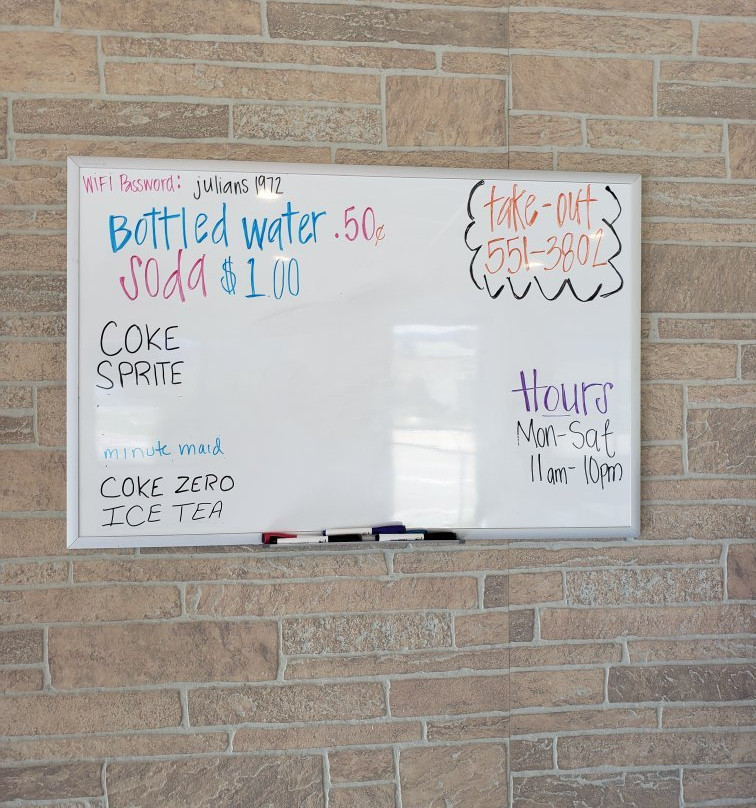 WiFI Password: julians 1972
Bottled water .50¢
Soda $1.00
COKE
SPRITE
minute maid
COKE ZERO
ICE TEA
take-out
551-3802
Hours
Mon-Sat
11am-10pm